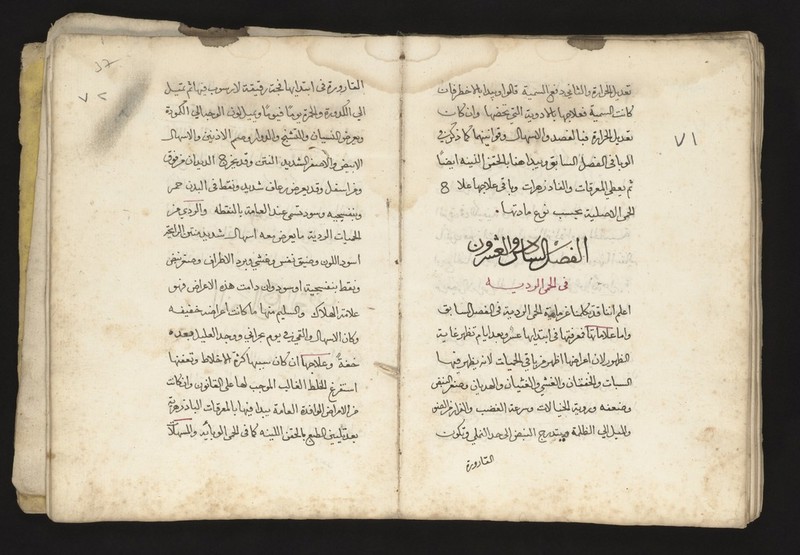 تعديل الحرارة والثاني دفع السمية قالوا ويبدا بالاخطر فان
كانت السمية فعلاجها بالادوية التي تخصها وان كان
تعديل الحرارة فبالفصد والاسهال وقوانينها كما ذكر في
الوبا في الفصل السابق ويبدا هنا بالحقن اللينه ايضا
ثم يعطي المعرقات والفادزهرات وباقي علاجها علاج
الحمي الاصلية بحسب نوع مادتها
٧١
الفصل السادس والعشرون
في الحمي الرديه
اعلم اننا قد تكلمنا عن ماهية الحمي الردية في الفصل السابق
واما علاماتها فمعرفتها في ابتدايها عسر وبعد ايام تظهر غاية
الظهور لان اعراضها اظهر من باقي الحميات لانه يظهر فيها
السبات والخفقان والغشي والغثيان والهديان وصغر النبض
وضعفه وروية الخيالات وسرعة الغضب والفرار من الضو
والميل الي الظلمة ويتدرج النبض الي حد النملي وتكون
القارورة
٧٢
القارورة في ابتدايها فجة رقيقة لا رسوب فيها ثم تميل
الي الكدورة والحمرة يوما فيوما ويميل لون الوجه الي الكمودة
ويعرض النسيان والتشنج والدوار وصمم الاذنين والاسهال
الابيض والاصفر الشديد النتن وقد يخرج الديدان من فوق
ومن اسفل وقد يعرض رعاف شديد ونقط في البدن حمر
وبنفسجيه وسود تسمي عند العامة بالنقطه والردي من
الحميات الردية ما يعرض معه اسهال شديد منتن الرايحة
اسود اللون وضيق نفس وغشي وبرد الاطراف وصغر نبض
ونقط بنفسجية او سود وان دامت هذه الاعراض فهو
علامة الهلاك والسليم منها ما كانت اعراضه خفيفه
وكان الاسهال والتعرق في يوم بحراني ووجد العليل بعده
خفة وعلاجها ان كان سببها كثرة الاخلاط وتعفنها
استفرغ الخلط الغالب الموجب لها علي القانون وان كانت
من الامراض الوافدة العامة يبدا فيها بالمعرقات البادزهرية
بعد تليين الطبع بالحقن اللينه كما في الحمي الوبائيه والمسهلات